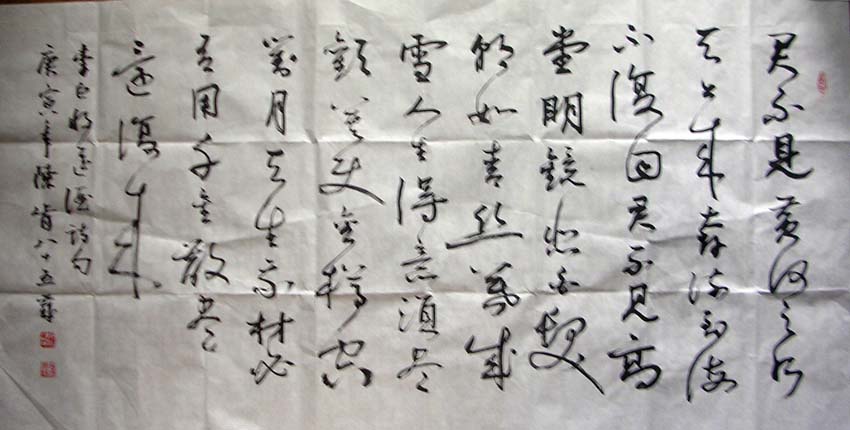 君不見黄河之水
天上来奔流到海
不復回君不見高
堂明鏡悲白髮
朝如青丝暮成
雪人生得意須尽
歡莫使金樽空
對月天生我材必
有用千金散尽
還復来
李白將進酒詩句
庚寅年陳肯八十五歲